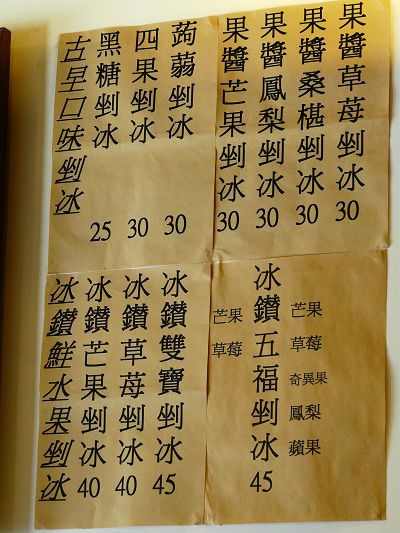 古早口味剉冰
黑糖剉冰 25
四果剉冰 30
蒟蒻剉冰 30
果醬芒果剉冰 30
果醬鳳梨剉冰 30
果醬桑椹剉冰 30
果醬草莓剉冰 30
冰鑽鮮水果剉冰
冰鑽芒果剉冰 40
冰鑽草莓剉冰 40
冰鑽雙寶剉冰 45
芒果
草莓
冰鑽五福剉冰 45
芒果
草莓
奇異果
鳳梨
蘋果